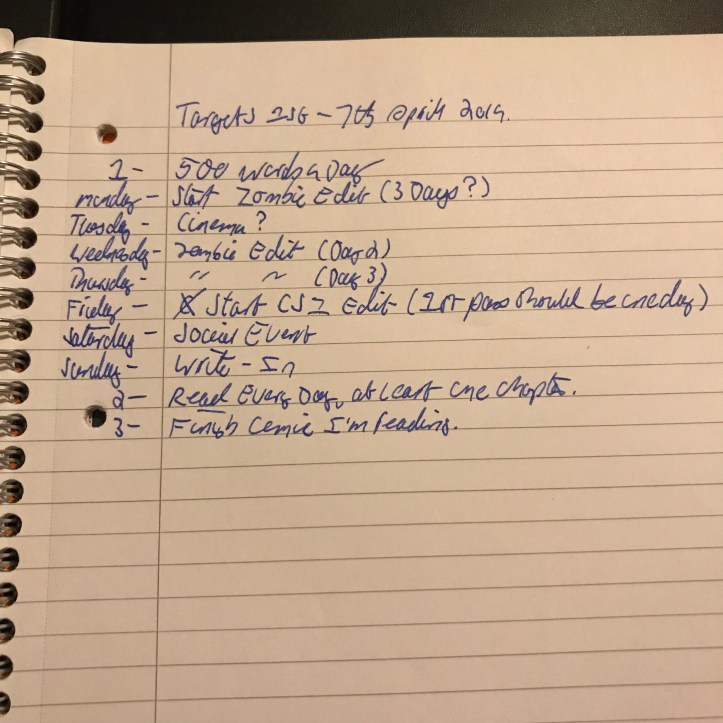 Targets 1st - 7th April 2019.
1- 500 words a Day
Monday - Start Zombie Edit (3 Days?)
Tuesday - Cinema?
Wednesday - Zombie Edit (Day 2)
Thursday - " " (Day 3)
Friday - Start CSI Edit (1st pass should be one day)
Saturday - Social Event
Sunday - Write-In
2- Read Every Day, at least one chapter.
3- Finish Comic I'm reading.